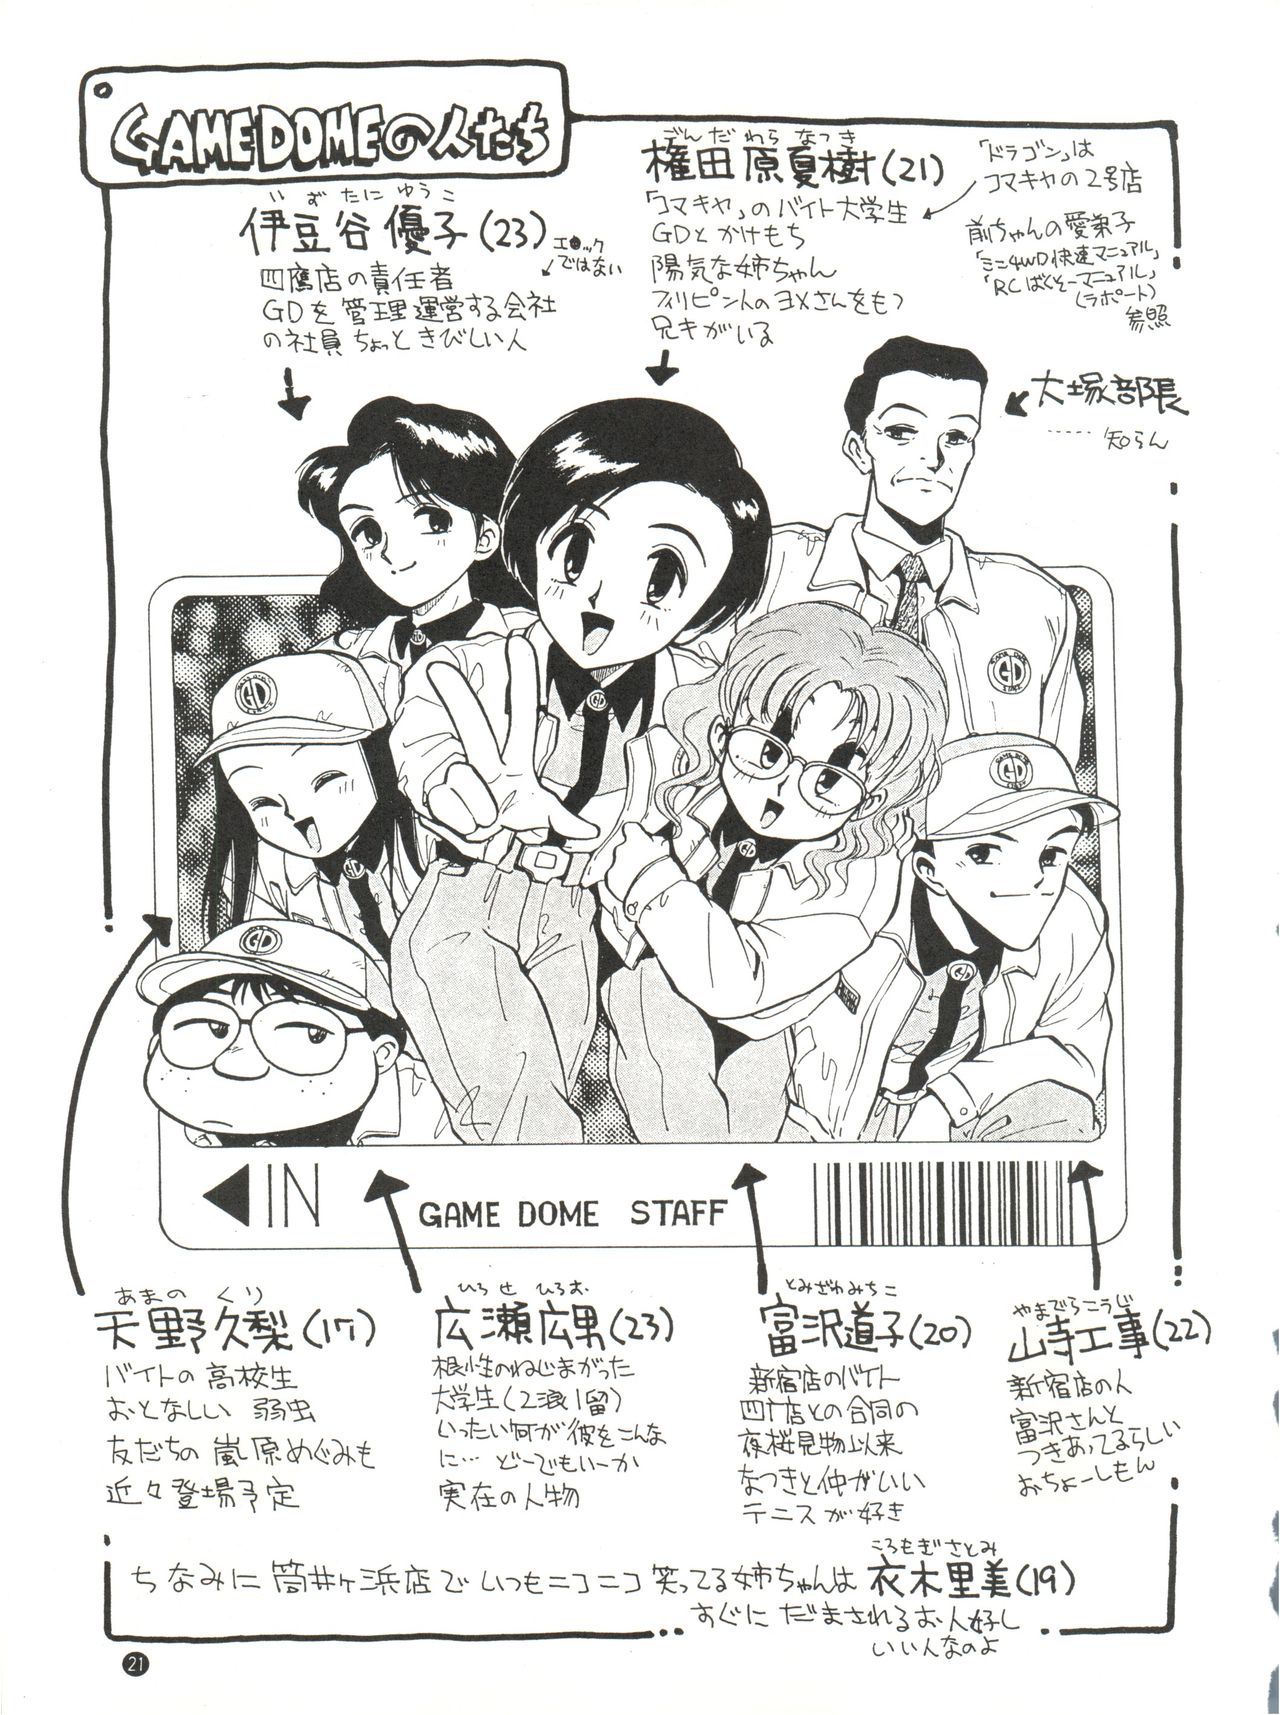 GAME DOMEの人たち
いずたに ゆうこ
伊豆谷 優子(23)
エ●ックではない
四鷹店の責任者
GDを管理運営する会社
の社員 ちょっときびしい人
ごんだわら なつき
権田原夏樹(21)
「コマキヤ」のバイト大学生
GDとかけもち
陽気な姉ちゃん
フィリピン人のヨメさんをもつ
兄キがいる
「ドラゴン」は
コマキヤの2号店
前ちゃんの愛弟子
「ミニ4WD快速マニュアル」
「RCばくそーマニュアル」
(ラポート)
参照
大塚部長
……知らん
GAME DOME STAFF
GD
IN
GAME DOME STAFF
あまの くり
天野久梨(17)
バイトの高校生
おとなしい 弱虫
友だちの 嵐原めぐみも
近々登場予定
ひろせ ひろお
広瀬広男(23)
根性のねじまがった
大学生(2浪1留)
いったい何が彼をこんな
に… どーでもいーか
実在の人物
とみざわみちこ
富沢道子(20)
新宿店のバイト
四門店との合同の
夜桜見物以来
なつきと仲がいい
テニスが好き
やまでらこうじ
山寺工事(22)
新宿店の人
富沢さんと
つきあってるらしい
おちょーしもん
ちなみに 筒井ヶ浜店で いつもニコニコ 笑ってる姉ちゃんは
ころもぎさとみ
衣木里美(19)
すぐに だまされるお人好し
いい人なのよ
21